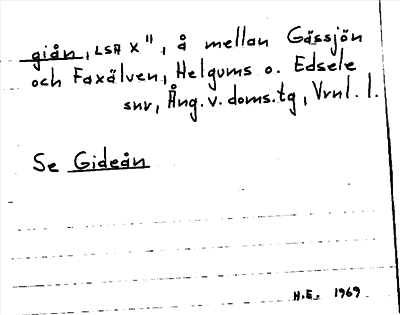 giån, LSA X", å mellan Gåssjön
och Faxälven, Helgums o. Edsele
snr, Ång. v. doms.tg, Vrnl. l.
Se Gideån
H.E. 1969